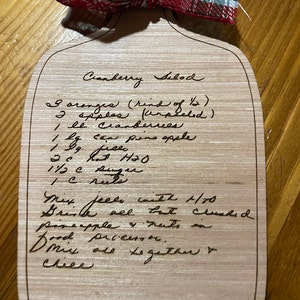 Cranberry Salad
3 oranges (rind of ½)
2 apples (unpeeled)
1 lb cranberries
1 lg can pineapple
1 lg jello
2 c hot H2O
1½ c sugar
1 c nuts
Mix jello with H2O
Grind all but crushed
pineapple & nuts in
food processor.
Mix all together &
chill